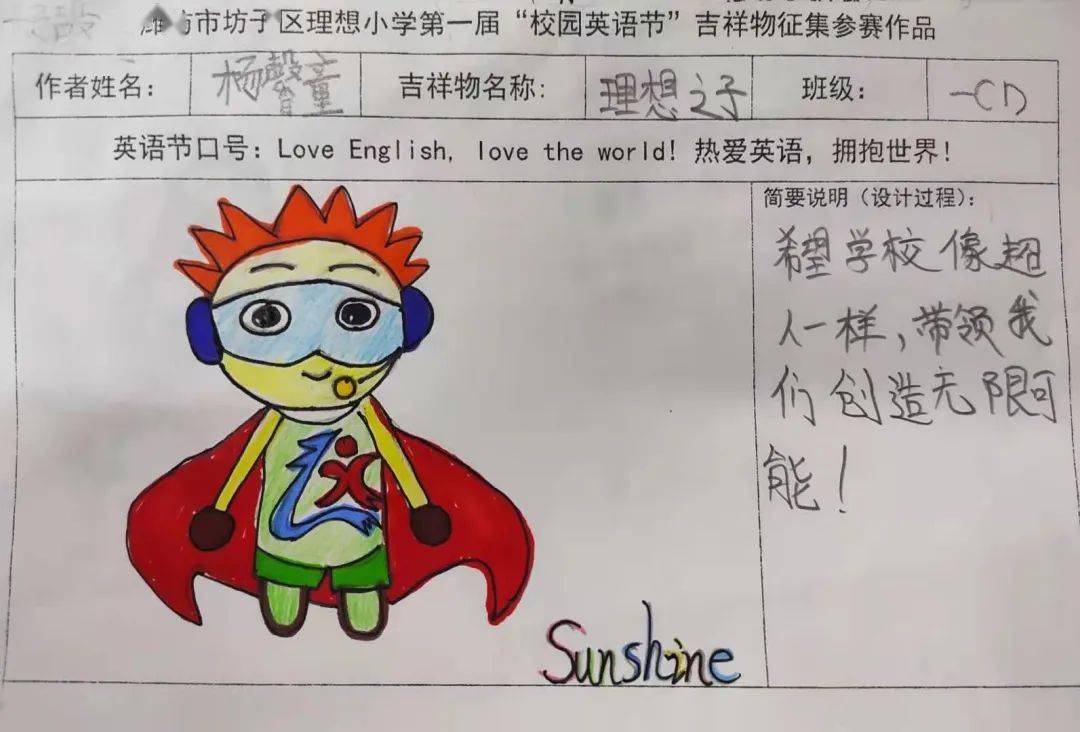 潍坊市坊子区理想小学第一届“校园英语节”吉祥物征集参赛作品
作者姓名: 杨馨童 吉祥物名称: 理想之子 班级: 一(1)
英语节口号: Love English, love the world! 热爱英语，拥抱世界!
简要说明（设计过程）:
希望学校像超
人一样，带领我
们创造无限可
能！
Sunshine